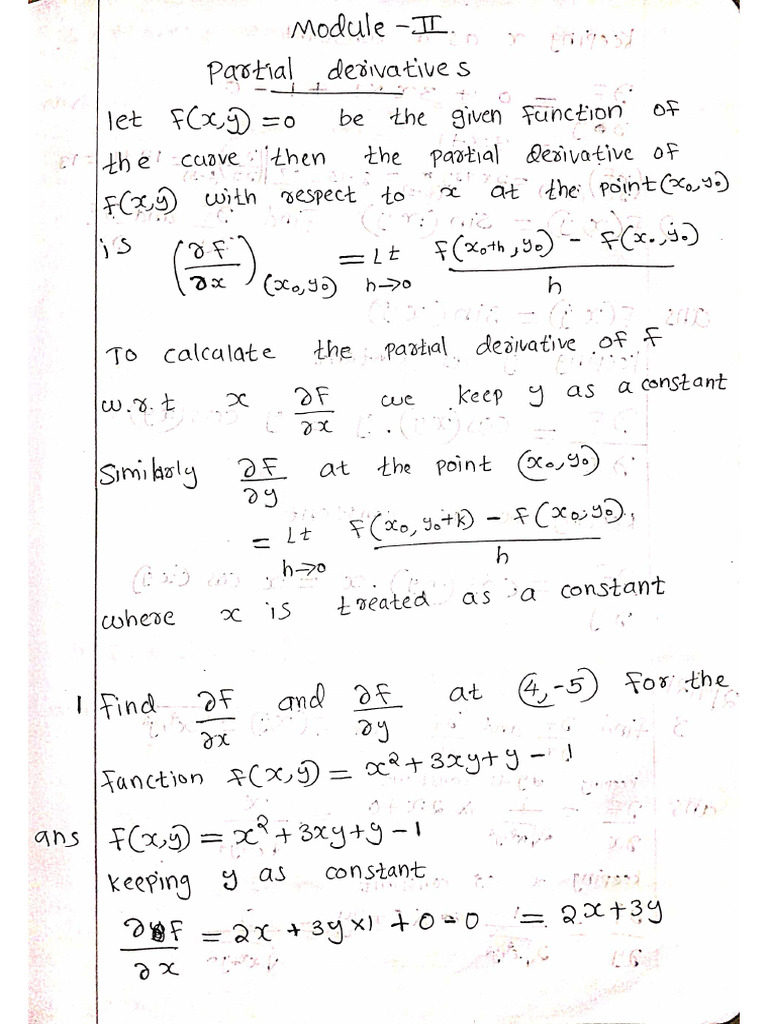 Module - II
Partial derivatives
let f(x,y) = 0 be the given function of
the curve then the partial derivative of
f(x,y) with respect to x at the point (x₀,y₀)
is (∂f/∂x)(x₀,y₀) = Lt h→0 f(x₀+h, y₀) - f(x₀,y₀) / h
To calculate the partial derivative of f
w.r.t x ∂f/∂x we keep y as a constant
Similarly ∂f/∂y at the point (x₀,y₀)
= Lt h→0 f(x₀, y₀+k) - f(x₀,y₀) / h
where x is treated as a constant
1 Find ∂f/∂x and ∂f/∂y at (4,-5) for the
fanction f(x,y) = x² + 3xy + y - 1
ans f(x,y) = x² + 3xy + y - 1
keeping y as constant
∂f/∂x = 2x + 3y×1 + 0 - 0 = 2x + 3y